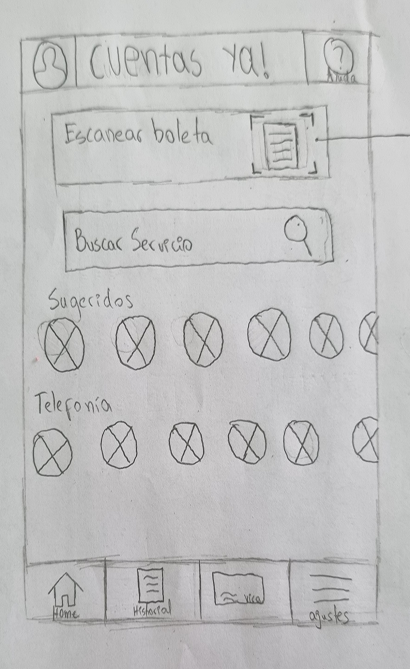 Cuentas ya!
Ayuda
Escanear boleta
Buscar Servicio
Sugeridos
Telefonía
Home
Historial
VISA
ajustes